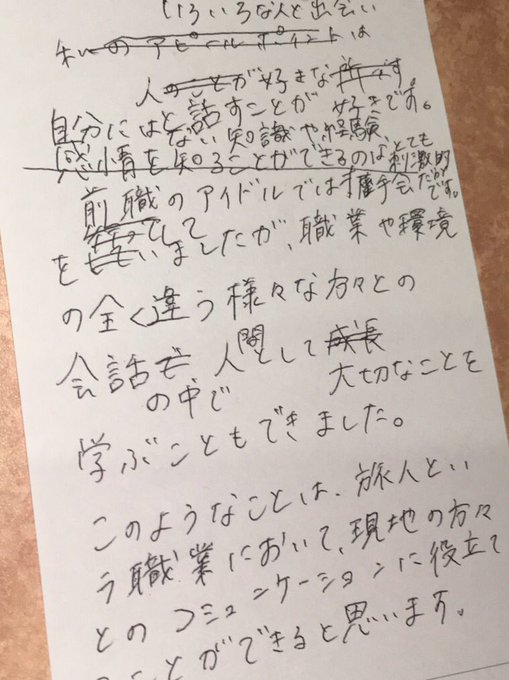 いろいろな人と出会い
私のアピールポイントは
人のことが好きな所です。
と話すことが好きです。
自分にはない知識や経験、
感情を知ることができるのはとても刺激的
だからです。
前職のアイドルでは握手会
をしていましたが、職業や環境
の全く違う様々な方々との
会話で人間として成長
の中で 大切なことを
学ぶこともできました。
このようなことは、旅人とい
う職業において、現地の方々
とのコミュニケーションに役立て
ことができると思います。